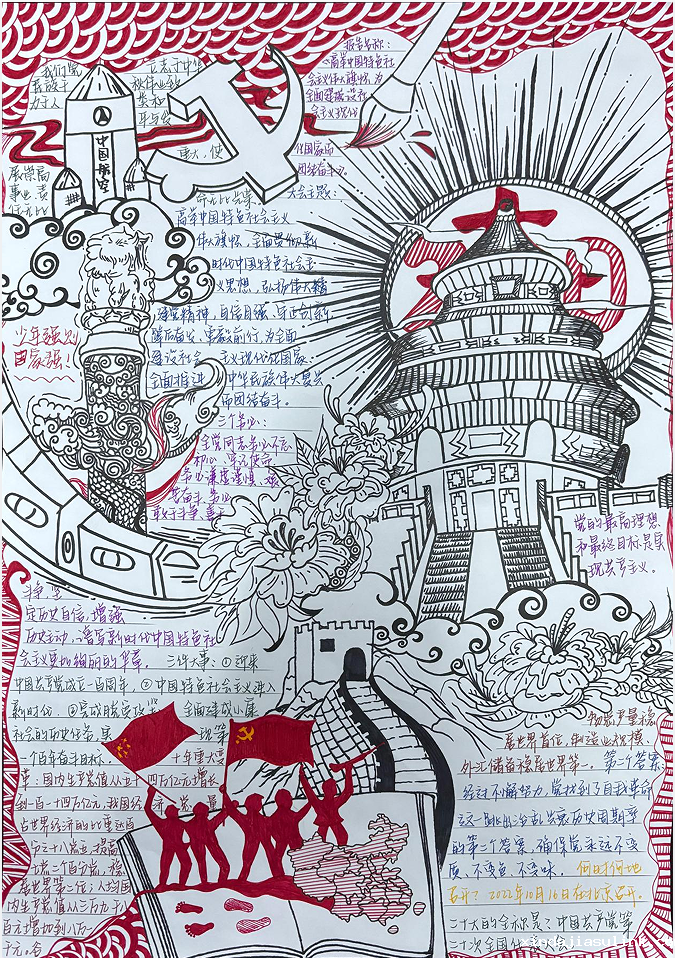 我们党
立志于中华
千秋伟业
致力于人
类和
报告名称:
高举中国特色社
会主义伟大旗帜,为
全面建设社
会主义现代
化国家而
团结奋斗。
重大,使
中国航空
事业,责
任无比
大会主题:
高举中国特色社会主义
伟大旗帜,全面贯彻新
时代中国特色社会主
义思想,弘扬伟大精
建党精神,自信自强、守正创新,
踔厉奋发、勇毅前行,为全面
建设社会主义现代化国家、
全面推进中华民族伟大复兴
而团结奋斗。
少年强则
国家强!
二十大
三个务必:
全党同志务必不忘
初心、牢记使命,
务必谦虚谨慎、艰
苦奋斗,务必
敢于斗争、善于
党的最高理想
和最终目标是实
现共产主义。
斗争,坚
定历史自信,增强
历史主动,谱写新时代中国特色社
会主义更加绚丽的华章。三件大事:①迎来
中国共产党成立一百周年,②中国特色社会主义进入
新时代,③完成脱贫攻坚、全面建成小康
社会的历史任务,实现第
一个百年奋斗目标。十年重大变
革:国内生产总值从五十四万亿元增长
到一百一十四万亿元,我国经济总量
占世界经济的比重达百
分之十八点五,提高
七点二个百分点,稳
居世界第二位;人均国
内生产总值从三万九千八
百元增加到八万一
千元。谷
物总产量稳
居世界首位,制造业规模、
外汇储备稳居世界第一。第二个答案:
经过不懈努力,党找到了自我革命
这一跳出治乱兴衰历史周期率
的第二个答案,确保党永远不变
质、不变色、不变味。何时何地
召开?2022年10月16日在北京召开。
二十大的全称是?中国共产党第
二十次全国代表大会